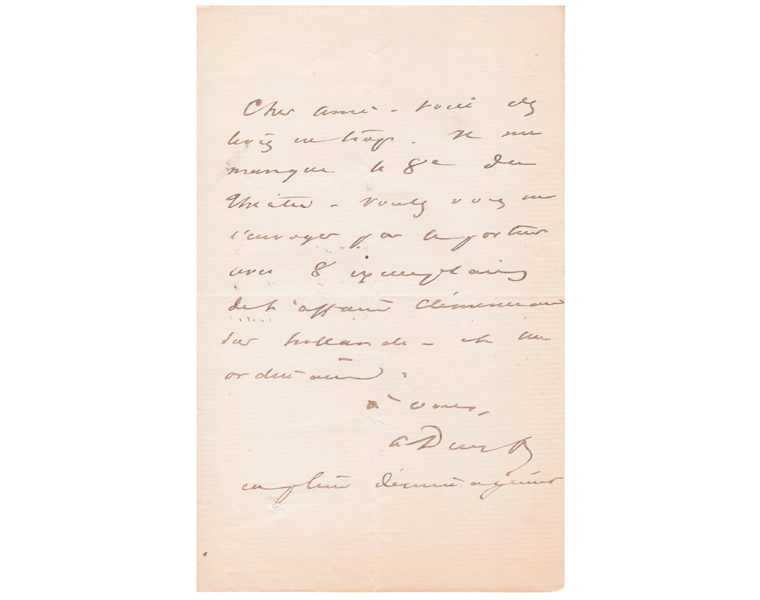 Cher ami - voici
en trop. Il me
manque le 8e du
Théâtre - voulez vous me
l'envoyer par le porteur
avec 8 exemplaires
de l'affaire Clémenceau
sur hollande - et un
ordinaire.
à vous,
A Dumas
en plein déménagement